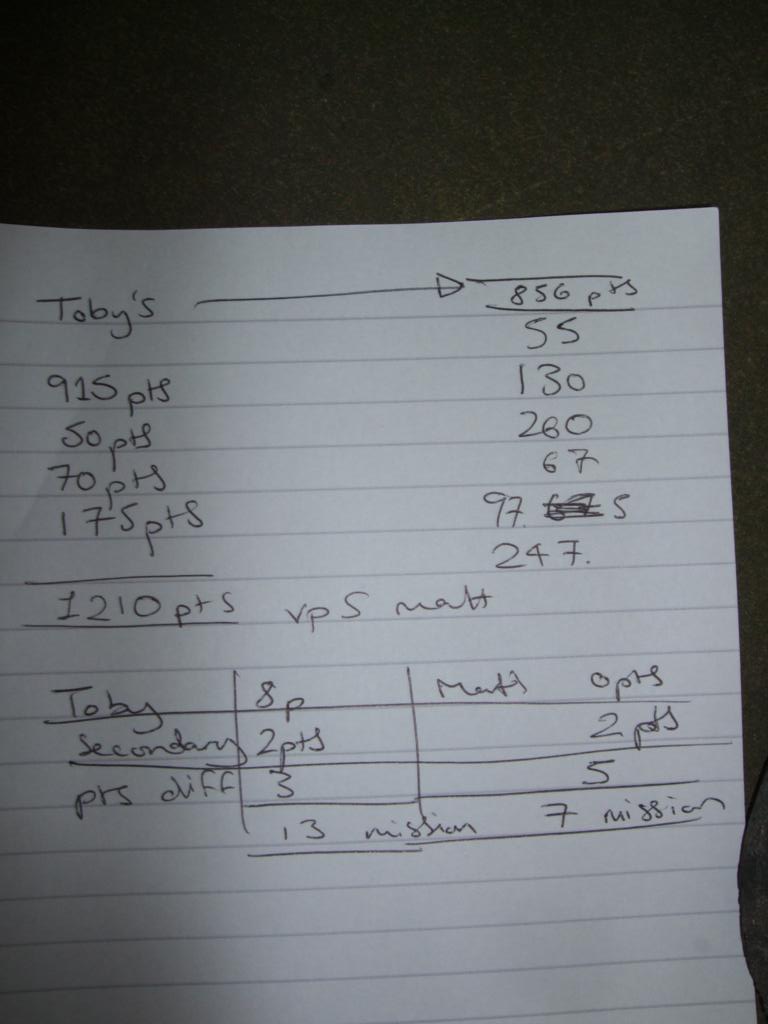 Toby's 856 pts
55
915 pts 130
50 pts 260
70 pts 67
175 pts 97. 5
247.
1210 pts vps matt
Toby 8p Matt 0pts
Secondary 2pts 2 pts
pts diff 3 5
13 mission 7 mission